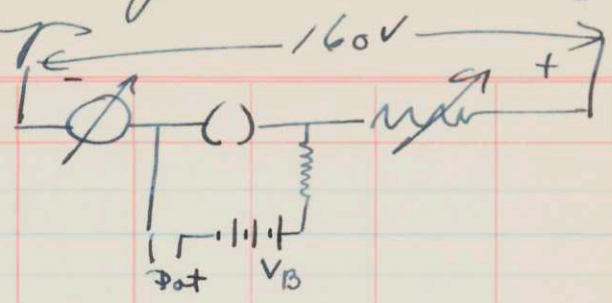 160V
- +
Pot VB